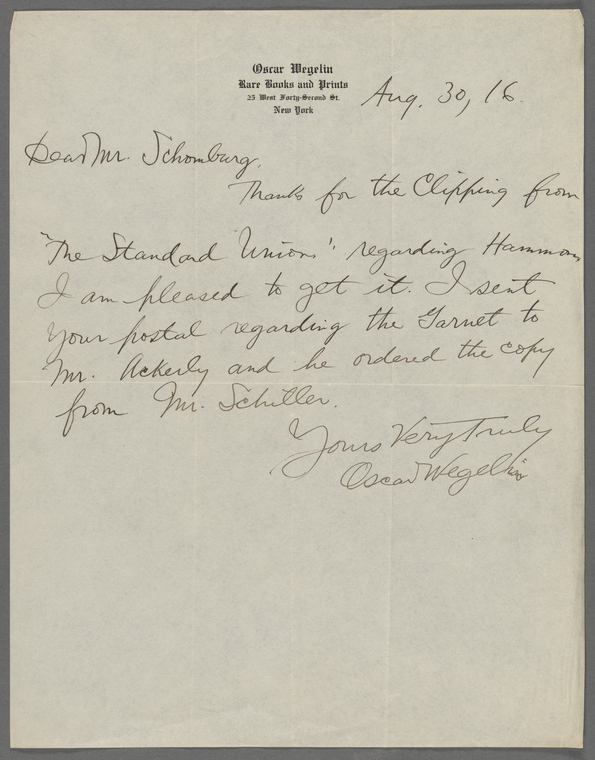 Oscar Wegelin
Rare Books and Prints
25 West Forty-Second St.
New York
Aug. 30, 16.
Dear Mr. Schomburg.
Thanks for the Clipping from
"The Standard Union" regarding Hammon,
I am pleased to get it. I sent
your postal regarding the Garnet to
Mr. Ackerly and he ordered the copy
from Mr. Schiller.
Yours Very Truly
Oscar Wegelin